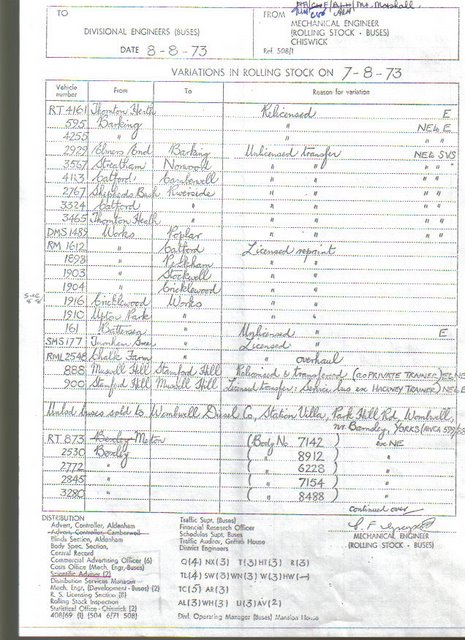 TO
FROM
MECHANICAL ENGINEER
(ROLLING STOCK - BUSES)
CHISWICK
DIVISIONAL ENGINEERS (BUSES)
DATE 8-8-73
Ref. 508/1
VARIATIONS IN ROLLING STOCK ON 7-8-73
Vehicle number From To Reason for variation
RT 4161 Thornton Heath Relicensed E
595 Barking " NE & E
4255 " " " "
2929 Elmers End Barking Unlicensed transfer NE & SVS
3567 Streatham Norwood " " " "
4113 Catford Camberwell " " " "
2767 Shepherds Bush Riverside " " " "
3324 Catford " " "
3465 Thornton Heath " " " " "
DMS 1489 Works Poplar " " " "
RM 1612 " Catford Licensed repaint
1898 " Peckham " "
1903 " Stockwell " "
1904 " Cricklewood " "
1916 Cricklewood Works " "
1910 Upton Park " " "
161 Battersea " Unlicensed E
SMS 177 Turnham Green " Licensed "
RML 2548 Chalk Farm " " overhaul
888 Muswell Hill Stamford Hill Relicensed & transferred (ex PRIVATE TRAINER)
900 Stamford Hill Muswell Hill Licensed transfer. Service bus ex HACKNEY TRAINER) NE & E
buses sold to Wombwell Diesel Co, Station Villa, Park Hill Rd, Wombwell,
nr. Barnsley, YORKS
RT 873 Bexley Motor (Body No. 7142 ) ex NE
2530 Bexley ( " 8912 )
2772 " ( " 6228 )
2845 " ( " 7154 )
3280 " ( " 8488 )
continued over
MECHANICAL ENGINEER
(ROLLING STOCK - BUSES)
DISTRIBUTION
Advert. Controller, Aldenham
Advert. Controller, Camberwell
Blinds Section, Aldenham
Body Spec. Section,
Central Record
Commercial Advertising Officer (6)
Costs Office (Mech. Engr, Buses)
Scientific Adviser (2)
Distribution Services Manager
Mech. Engr, (Development - Buses) (2)
R. S. Licensing Section (8)
Rolling Stock Inspection
Statistical Office - Chiswick (2)
Traffic Supt. (Buses)
Financial Research Officer
Schedules Supt. Buses
Traffic Auditor, Griffith House
District Engineers
Q(4) NX(3) T(3) HT(3) R(3)
TL(4) SW(3) WN(3) W(3) HW(-)
TC(5) AR(3)
AL(3) WH(3) U(3) AV(2)
Divl. Operating Manager (Buses) Mansion House